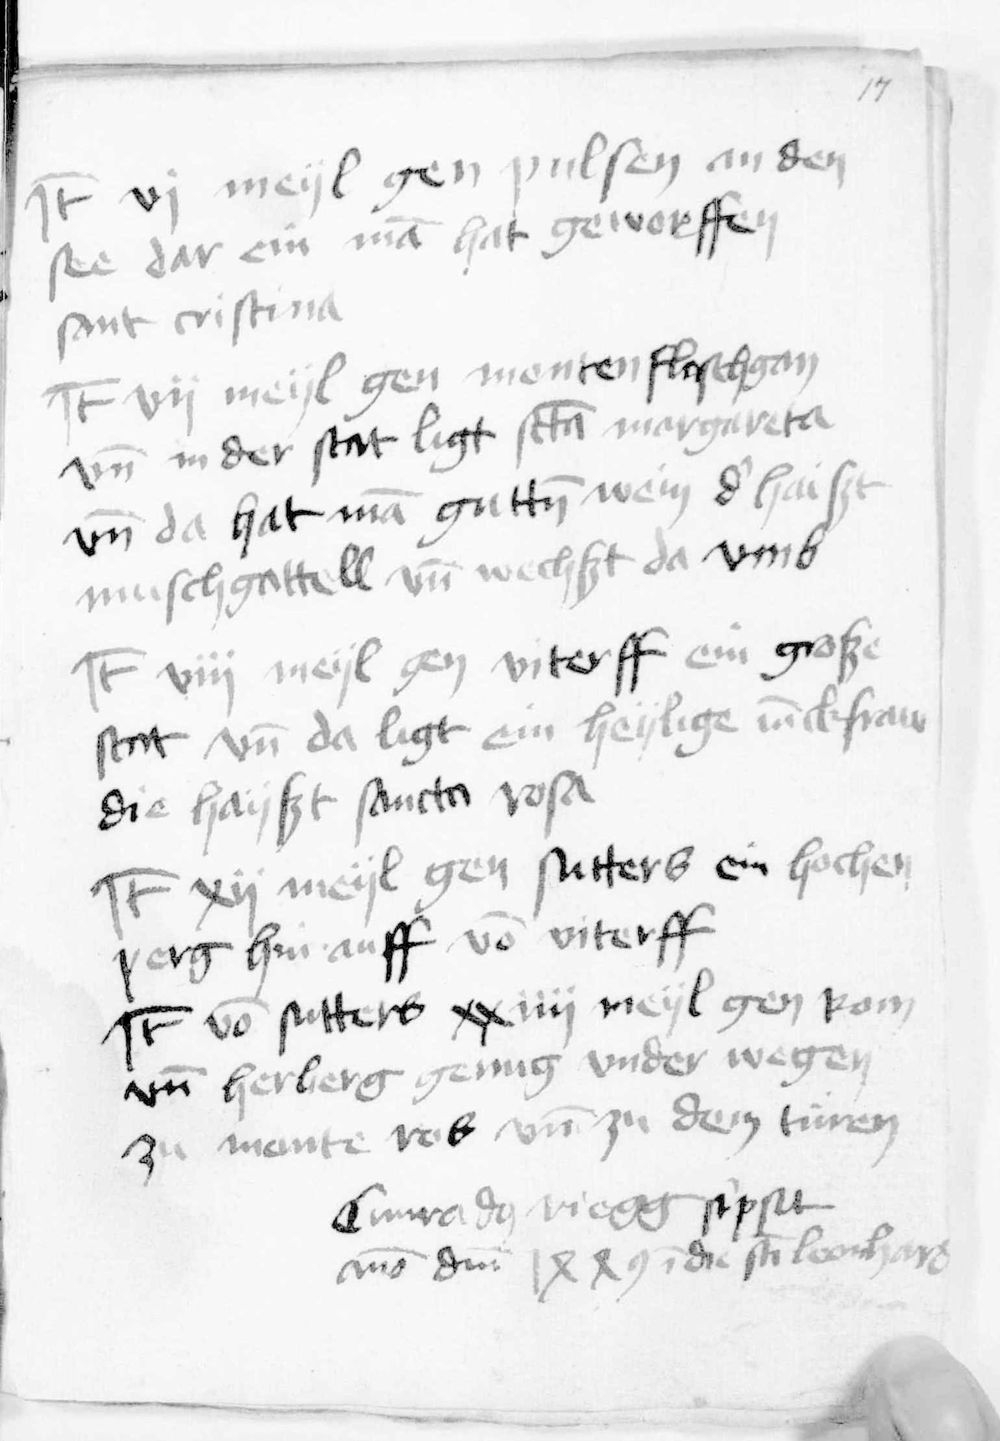 17
It̄ vj meijl gen pulsen an den
see dar ein mā hat geworffen
sant cristina
It̄ vij meijl gen montenflaschgan
vn̄ in der stat ligt sctā margareta
vn̄ da hat mā guttn̄ wein d' haiszt
muschgattell vn̄ wechszt da vmb
It̄ viij meijl gen viterff ein grosze
stat vn̄ da ligt ein heijlige iūckfraw
die haijszt sancta rosa
It̄ xij meijl gen sutters ein hochen
perg hin auff vō viterff
It̄ vō sutters xxiiij meijl gen rom
vn̄ herberg genug vnder wegen
zu monte ros vn̄ zu dem türen
Cunradꝯ riegg sc'psit
año dm̄i 1889 ī die sct̄i leonhard